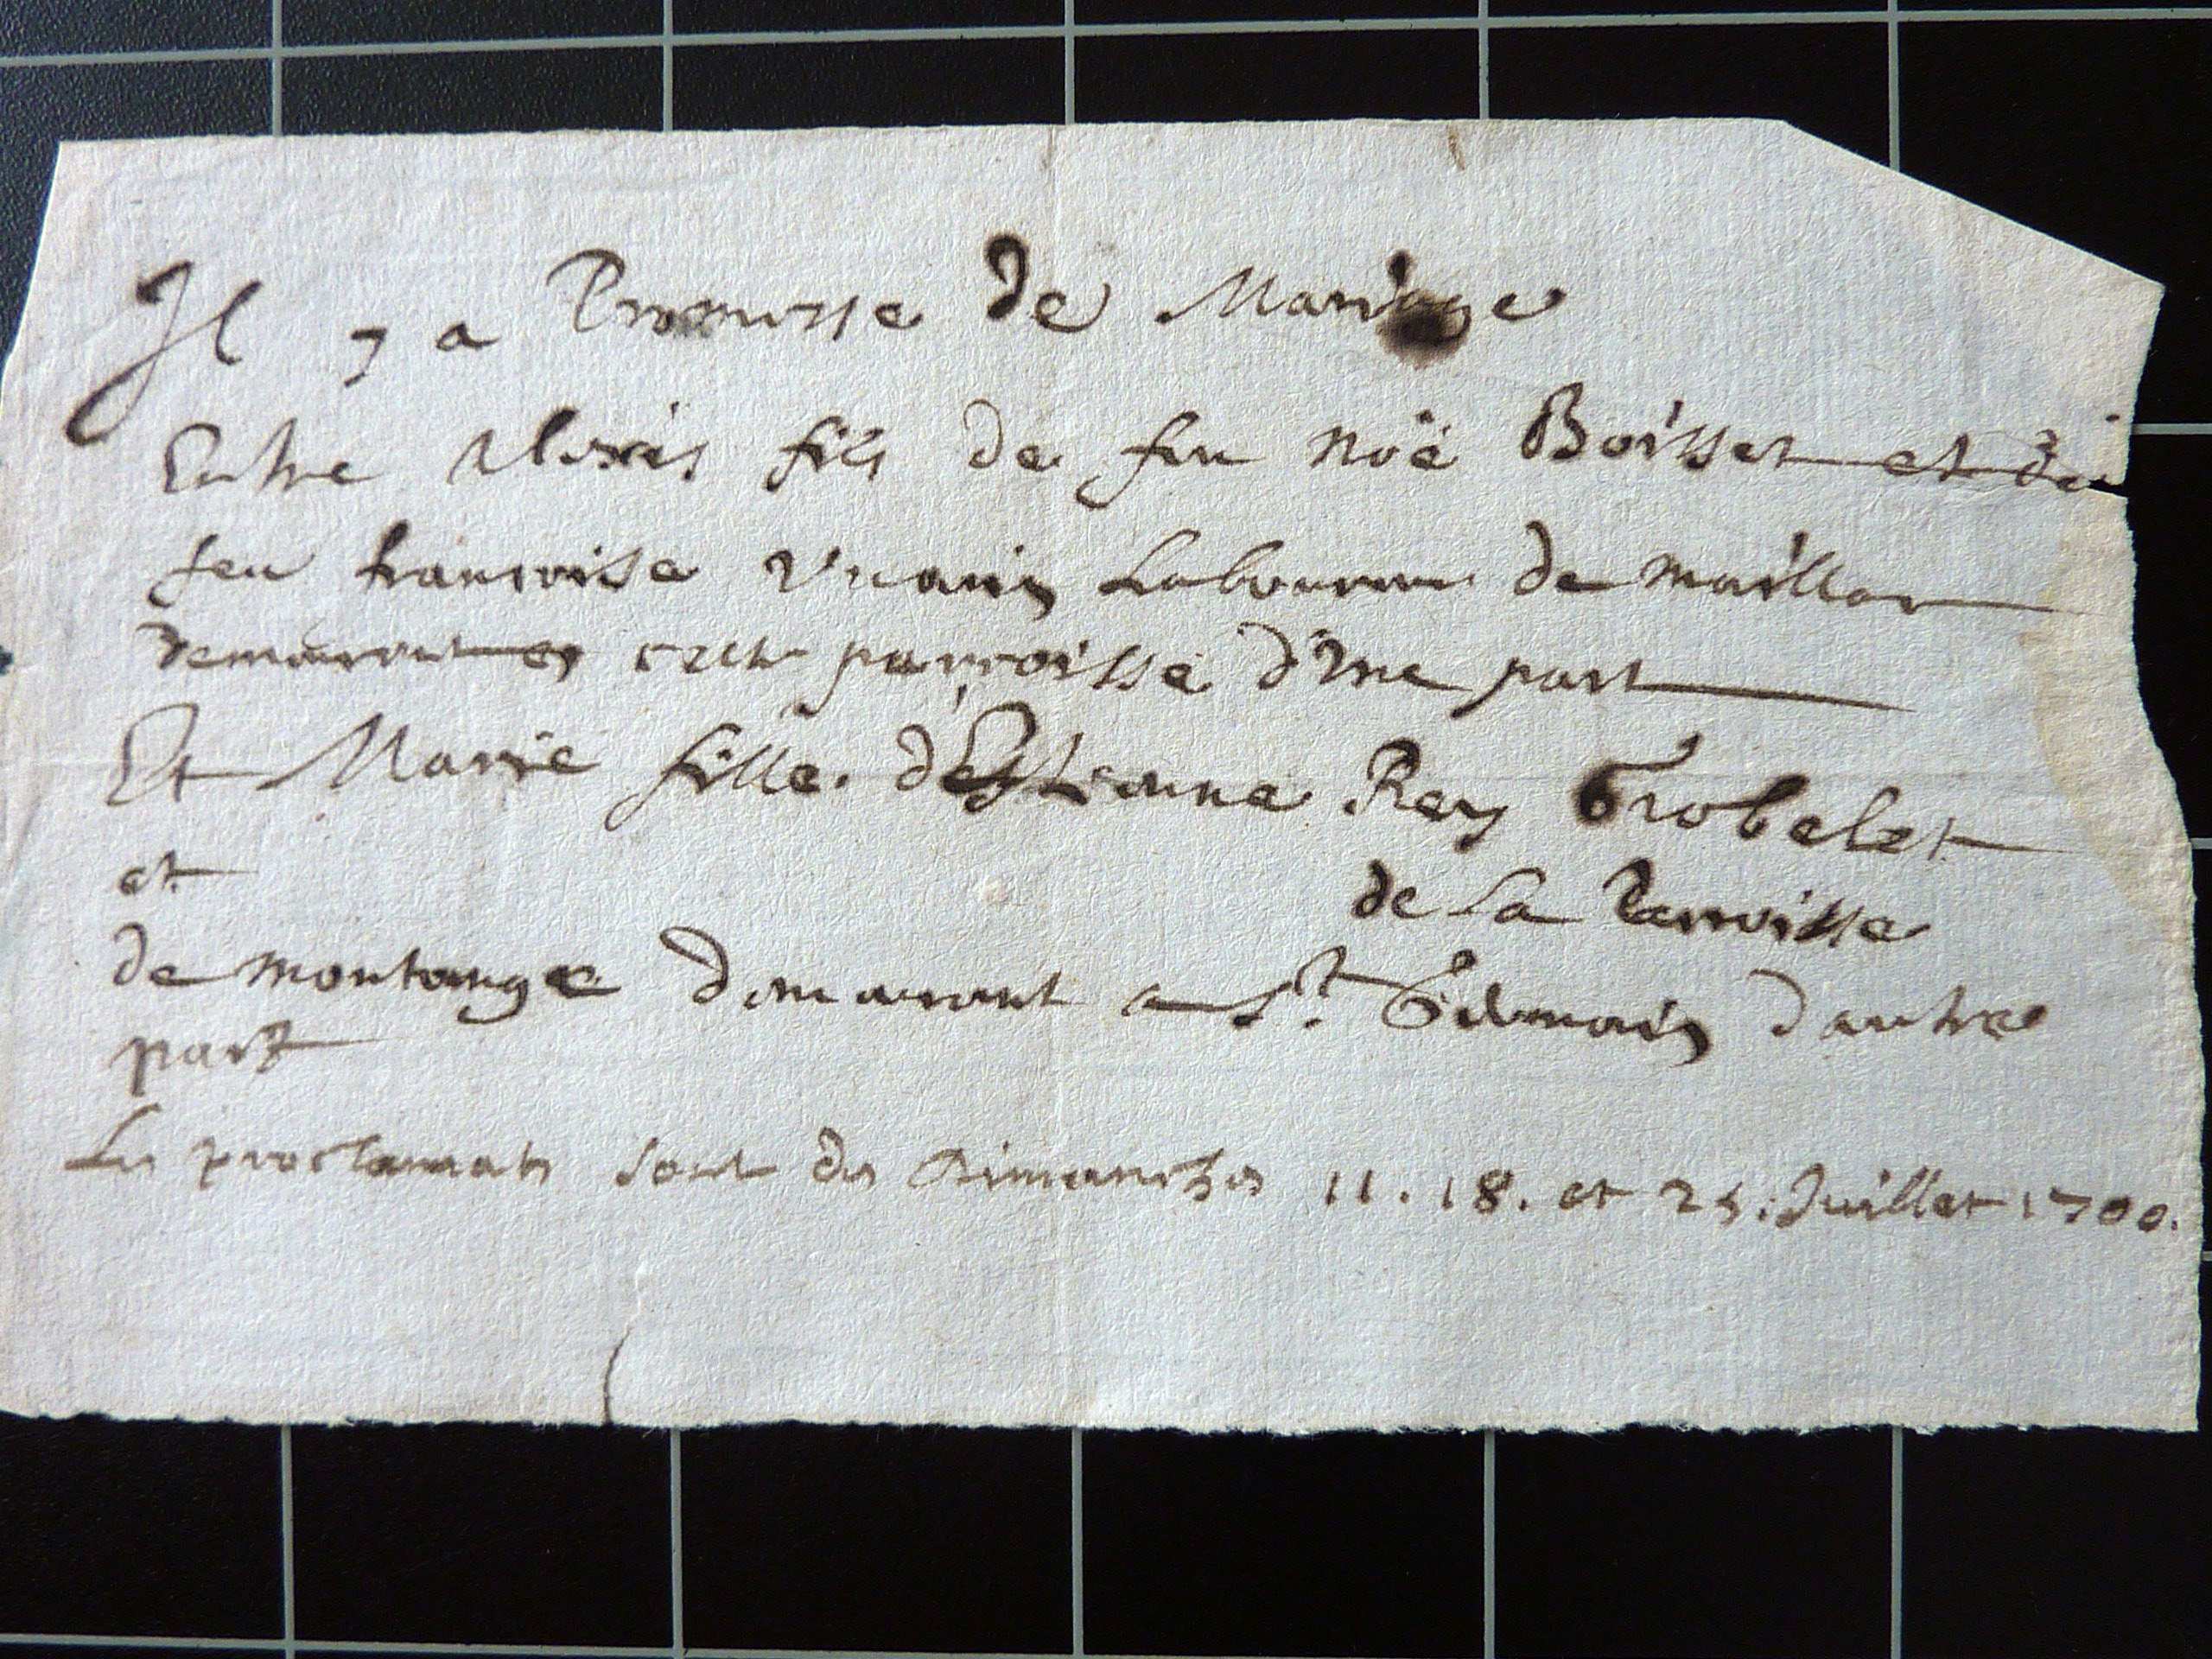 Il y a Promesse de Mariage
Entre Alexis fils de feu Noë Boisset et de
feu francoise Laboureur de maillar
demeurant en cette parroisse d'une part
Et Marie fille d'Estienne Rey Grobelet
et
de la Parroisse
de montange demeurant a St. Germain d'autre
part
Les proclamats sont des dimanches 11. 18. et 25. Juillet 1700.